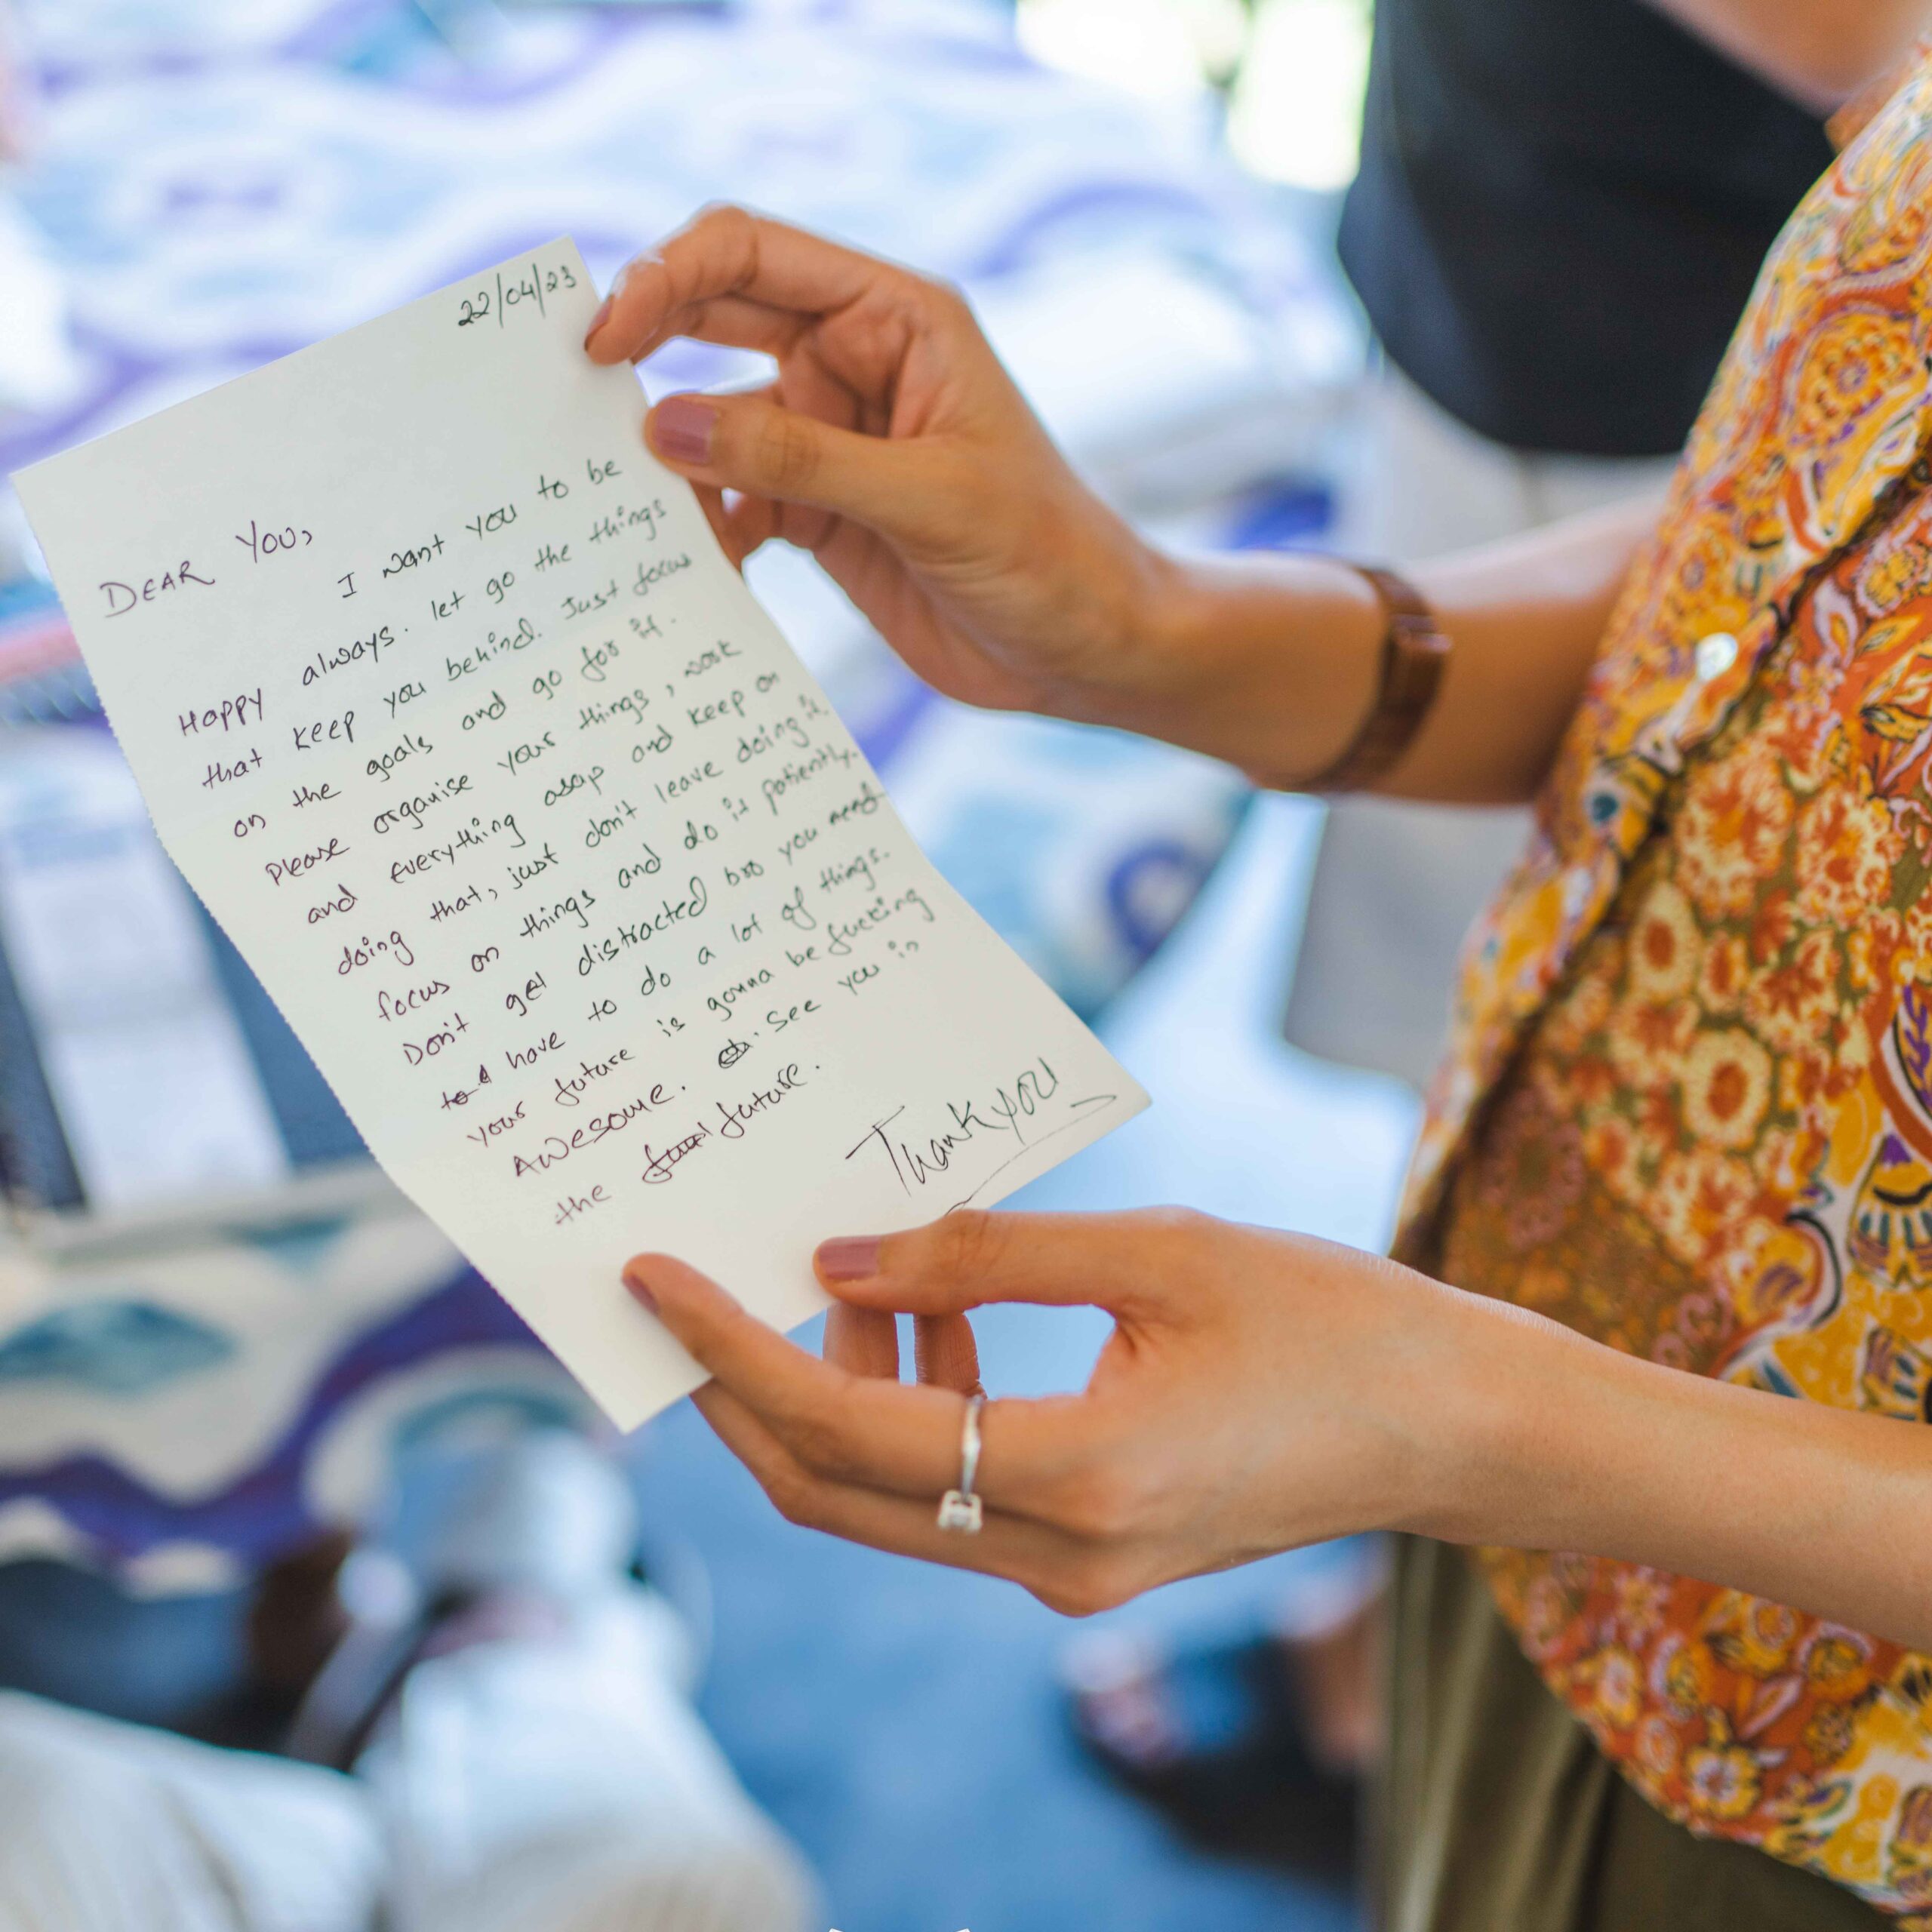 22/04/23
DEAR YOU,
I want you to be
Happy always. let go the things
that keep you behind. Just focus
on the goals and go for it.
Please organise your things, work
and everything asap and keep on
doing that, just don't leave doing it,
focus on things and do it patiently.
Don't get distracted bro you need
to have to do a lot of things.
your future is gonna be fucking
Awesome. See you in
the future.
Thank you